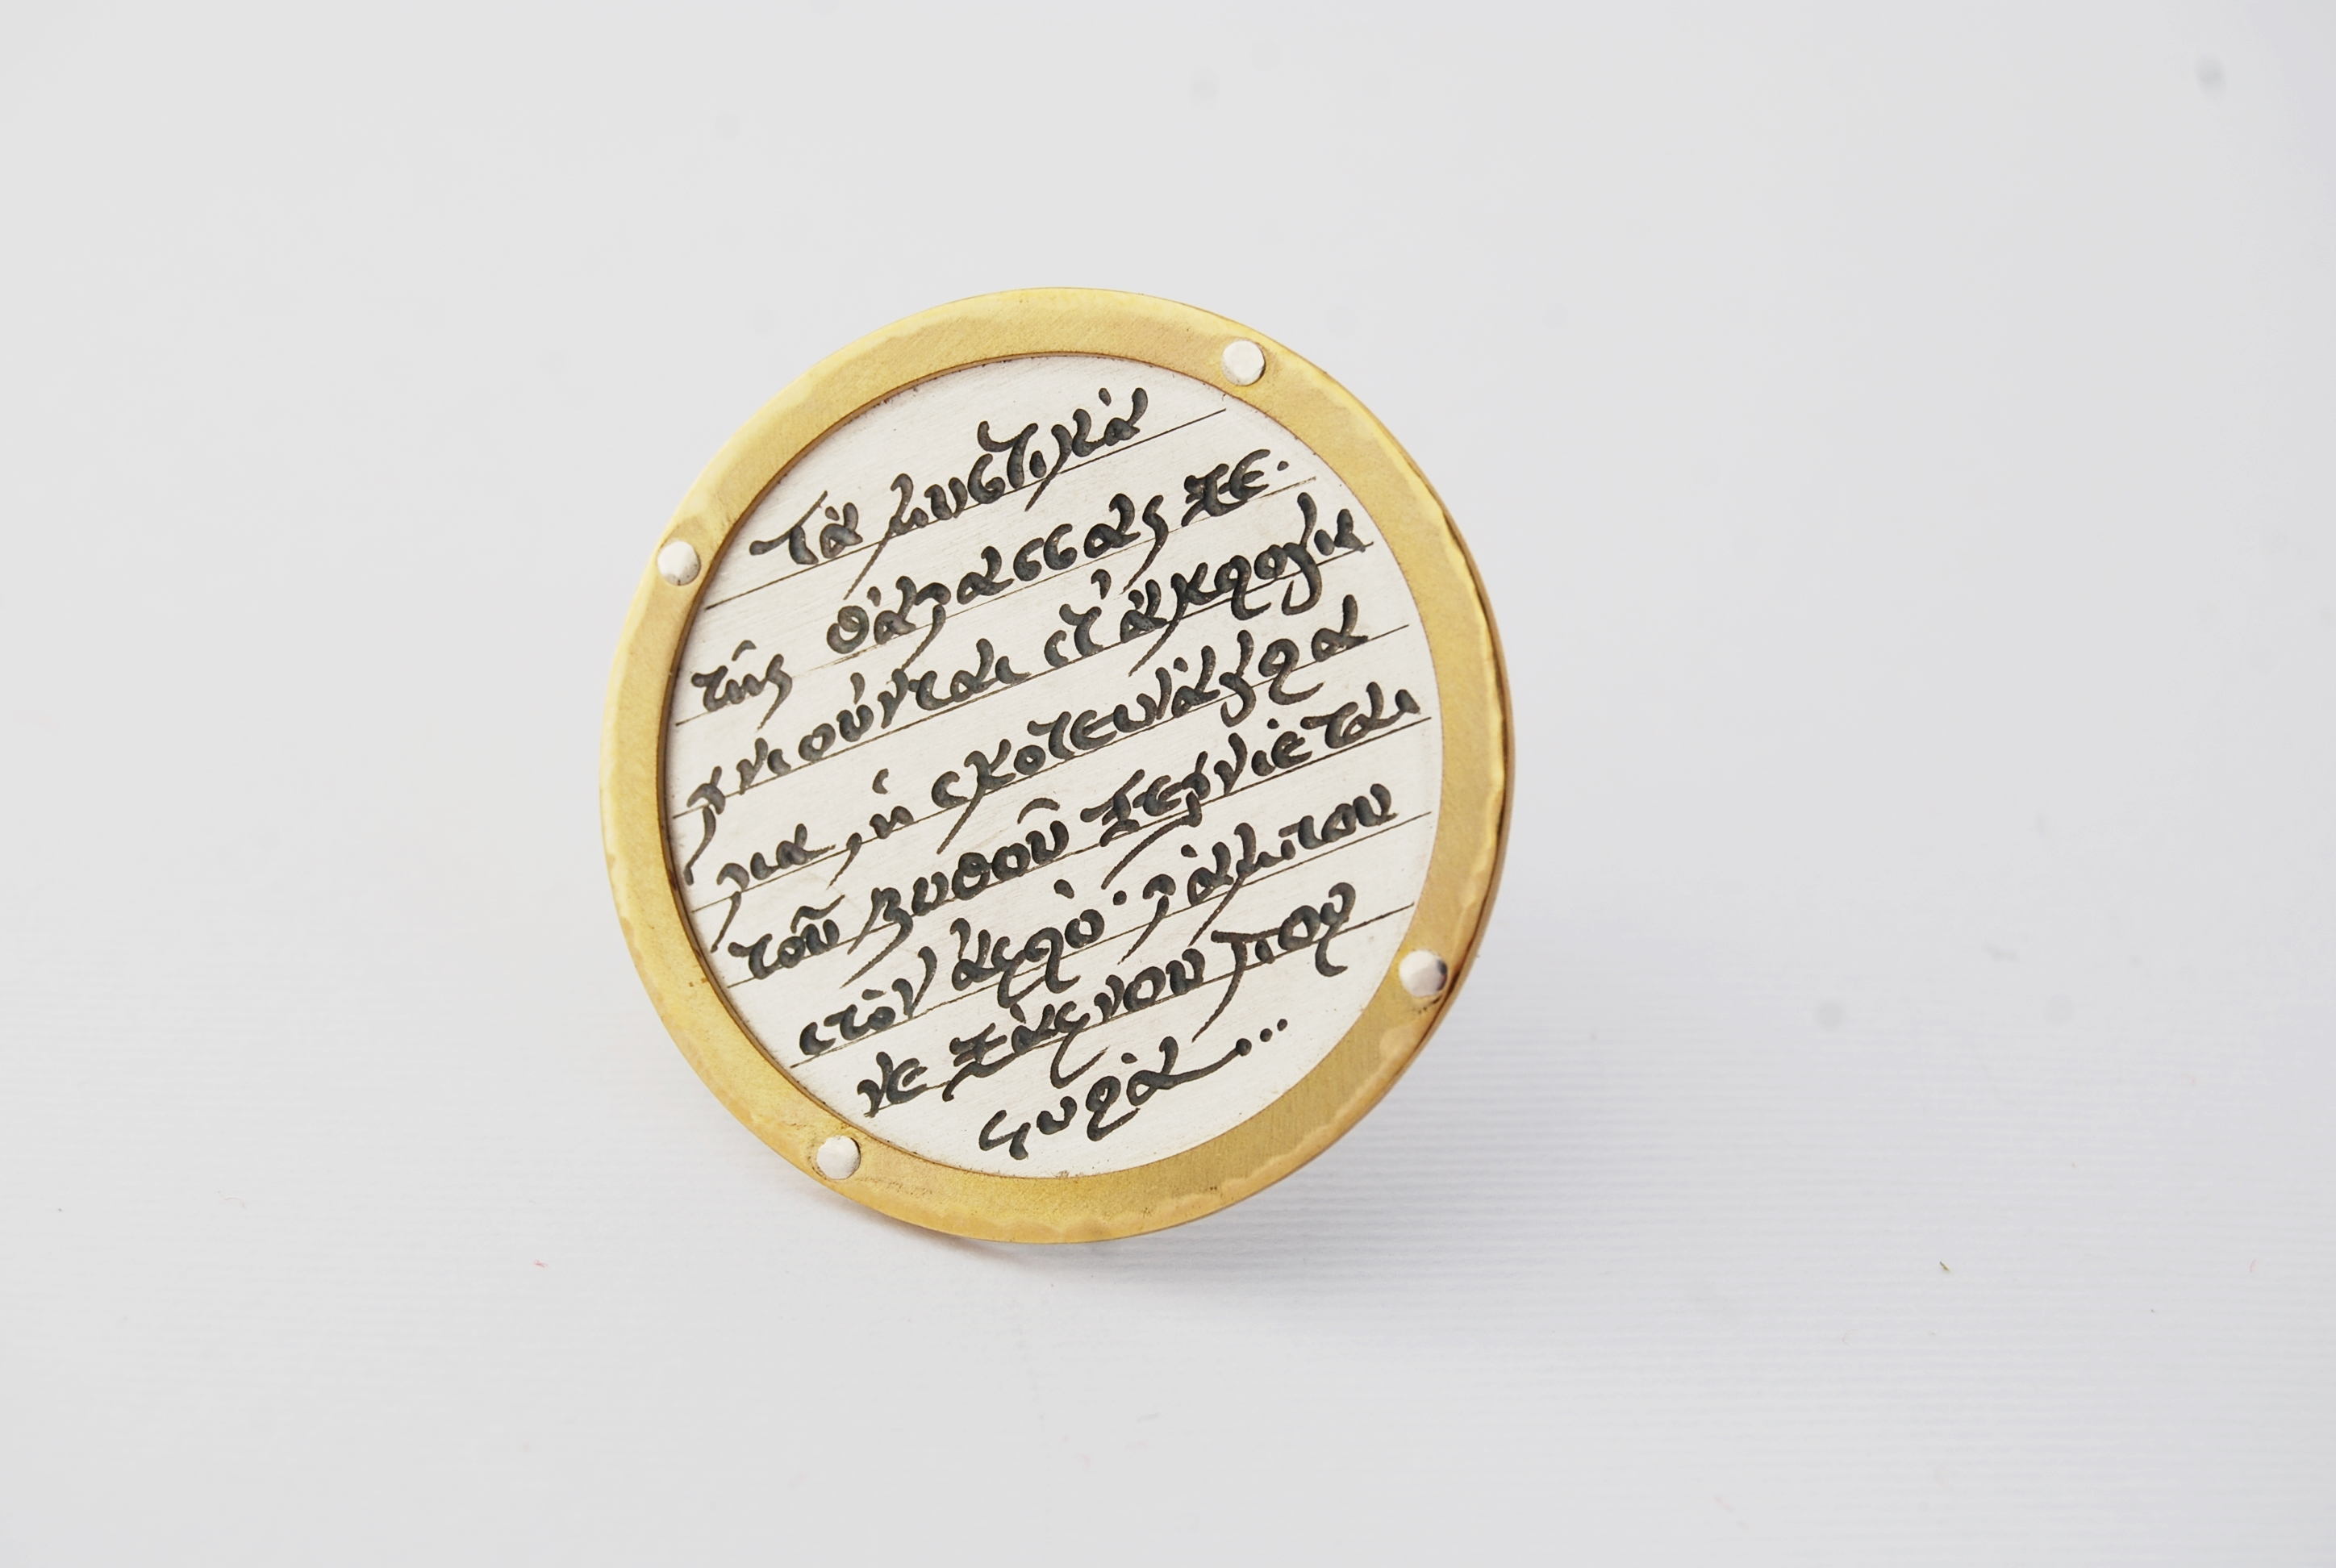 Τὰ μυστικὰ
τῆς θάλασσας ξε-
χνιούνται στ' ἀκρογιά
λια, ἡ σκοτεινάγρα
τοῦ βυθοῦ ξεχνιέται
στὸν ἀφρό· λάμπου
νε ξάφνου πορ
φυρὰ...